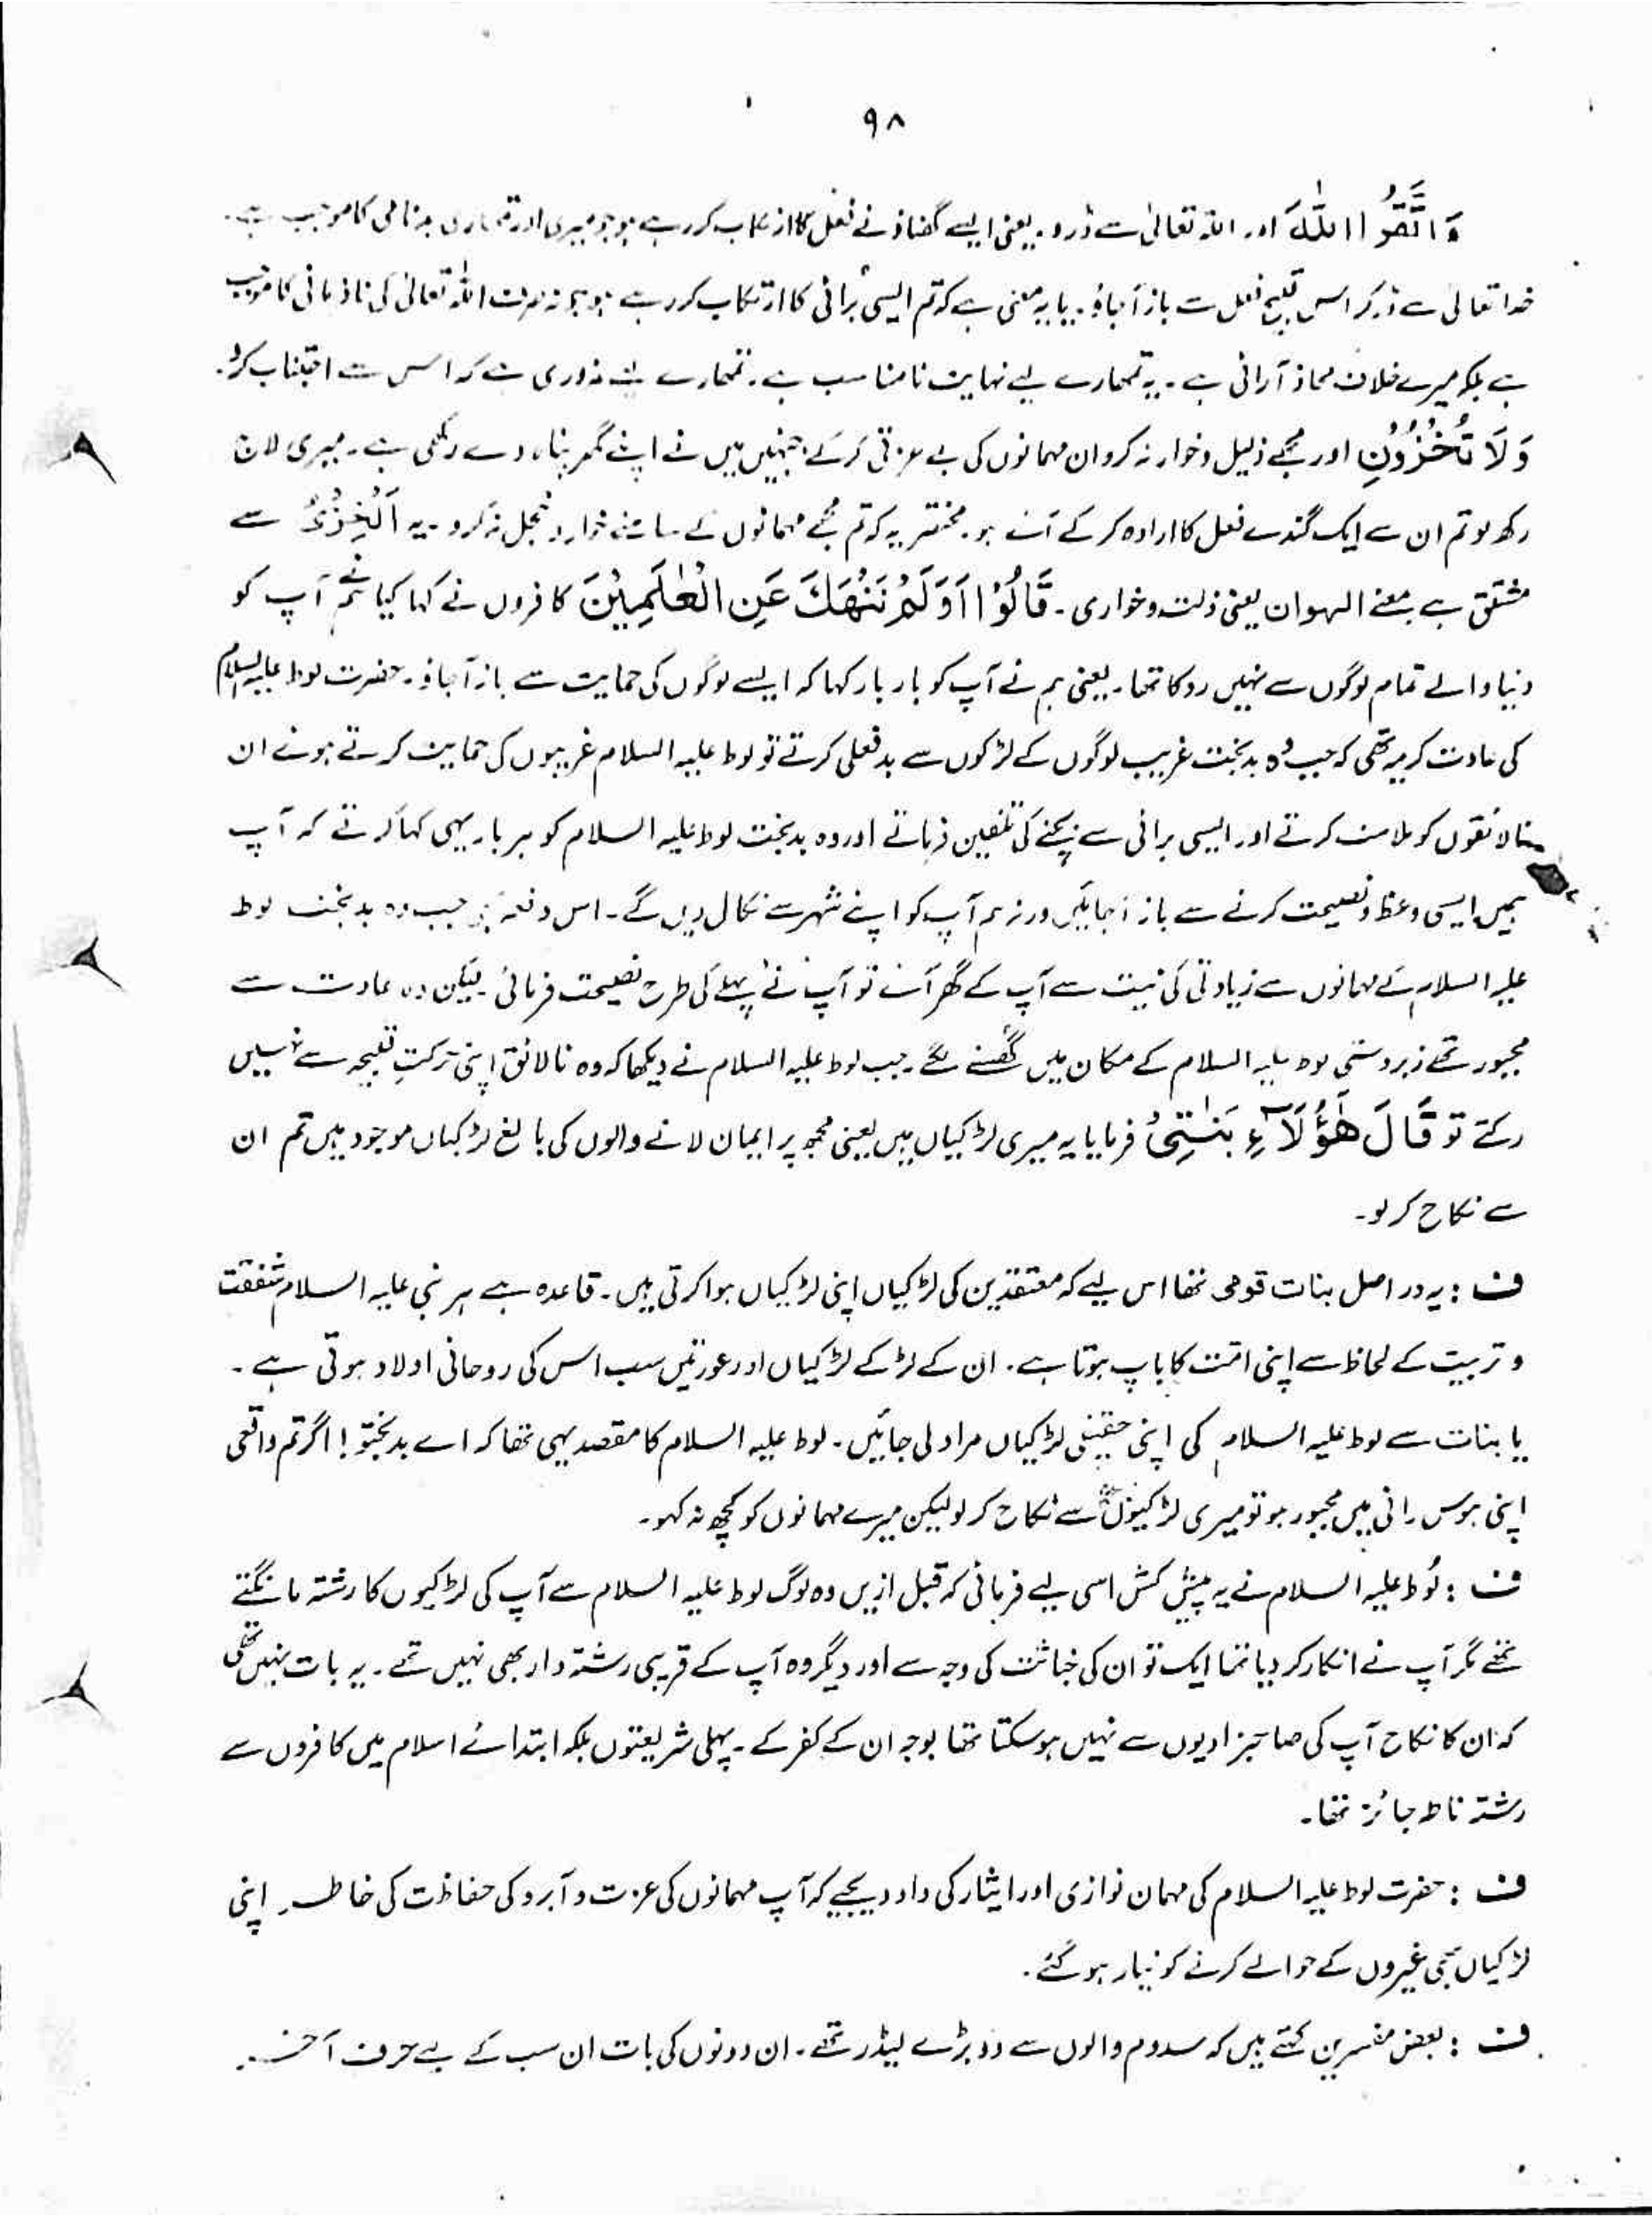 ۹۸
وَاتَّقُوا اللّٰهَ اور اللہ تعالیٰ سے ڈرو۔ یعنی ایسے گھناؤنے فعل کا ارتکاب کررہے ہو جو میری اور تمہاری بدنامی کا موجب ہے۔
خدا تعالیٰ سے ڈر کر اس قبیح فعل سے باز آجاؤ۔ یا یہ معنی ہے کہ تم ایسی برائی کا ارتکاب کررہے ہو جو نہ صرف اللہ تعالیٰ کی نافرمانی کا موجب
ہے بلکہ میرے خلاف محاذ آرائی ہے۔ یہ تمہارے لیے نہایت نامناسب ہے۔ تمہارے لیے ضروری ہے کہ اس سے اجتناب کرو۔
وَلَا تُخْزُوْنِ اور مجھے ذلیل و خوار نہ کرو ان مہمانوں کی بے عزتی کرکے جنہیں میں نے اپنے گھر پناہ دے رکھی ہے۔ میری لاج
رکھ لو تم ان سے ایک گندے فعل کا ارادہ کرکے آئے ہو۔ مختصر یہ کہ تم مجھے مہمانوں کے سامنے خوار و خجل نہ کرو۔ یہ اَلْخِزْیُ سے
مشتق ہے بمعنے الہوان یعنی ذلت و خواری۔ قَالُوْا اَوَلَمْ نَنْهَكَ عَنِ الْعٰلَمِيْنَ کافروں نے کہا کیا ہم نے آپ کو
دنیا والے تمام لوگوں سے نہیں روکا تھا۔ یعنی ہم نے آپ کو بار بار کہا کہ ایسے لوگوں کی حمایت سے باز آجاؤ۔ حضرت لوط علیہ السلام
کی عادت کریمہ تھی کہ جب وہ بدبخت غریب لوگوں کے لڑکوں سے بدفعلی کرتے تو لوط علیہ السلام غریبوں کی حمایت کرتے ہوئے ان
نالائقوں کو ملامت کرتے اور ایسی برائی سے بچنے کی تلقین فرماتے اور وہ بدبخت لوط علیہ السلام کو ہر بار یہی کہا کرتے کہ آپ
ہمیں ایسی وعظ و نصیحت کرنے سے باز آجائیں ورنہ ہم آپ کو اپنے شہر سے نکال دیں گے۔ اس دفعہ جب وہ بدبخت لوط
علیہ السلام کے مہمانوں سے زیادتی کی نیت سے آپ کے گھر آئے تو آپ نے پہلے کی طرح نصیحت فرمائی لیکن وہ عادت سے
مجبور تھے زبردستی لوط علیہ السلام کے مکان میں گھسنے لگے۔ جب لوط علیہ السلام نے دیکھا کہ وہ نالائق اپنی حرکتِ قبیحہ سے نہیں
رکتے تو قَالَ هٰٓؤُلَآءِ بَنٰتِیْٓ فرمایا یہ میری لڑکیاں ہیں یعنی مجھ پر ایمان لانے والوں کی بالغ لڑکیاں موجود ہیں تم ان
سے نکاح کر لو۔
ف : یہ دراصل بنات قومی تھا اس لیے کہ معتقدین کی لڑکیاں اپنی لڑکیاں ہوا کرتی ہیں۔ قاعدہ ہے ہر نبی علیہ السلام شفقت
و تربیت کے لحاظ سے اپنی امت کا باپ ہوتا ہے۔ ان کے لڑکے لڑکیاں اور عورتیں سب اس کی روحانی اولاد ہوتی ہے۔
یا بنات سے لوط علیہ السلام کی اپنی حقیقی لڑکیاں مراد لی جائیں۔ لوط علیہ السلام کا مقصد یہی تھا کہ اے بدبختو! اگر تم واقعی
اپنی ہوس رانی میں مجبور ہو تو میری لڑکیوں سے نکاح کر لو لیکن میرے مہمانوں کو کچھ نہ کہو۔
ف : لُوط علیہ السلام نے یہ پیش کش اسی لیے فرمائی کہ قبل ازیں وہ لوگ لوط علیہ السلام سے آپ کی لڑکیوں کا رشتہ مانگتے
تھے مگر آپ نے انکار کر دیا تھا ایک تو ان کی خباثت کی وجہ سے اور دیگر وہ آپ کے قریبی رشتہ دار بھی نہیں تھے۔ یہ بات نہیں تھی
کہ ان کا نکاح آپ کی صاحبزادیوں سے نہیں ہوسکتا تھا بوجہ ان کے کفر کے۔ پہلی شریعتوں بلکہ ابتدائے اسلام میں کافروں سے
رشتہ ناطہ جائز تھا۔
ف : حضرت لوط علیہ السلام کی مہمان نوازی اور ایثار کی داد دیجیے کہ آپ مہمانوں کی عزت و آبرو کی حفاظت کی خاطر اپنی
لڑکیاں بھی غیروں کے حوالے کرنے کو تیار ہوگئے۔
ف : بعض مفسرین کہتے ہیں کہ سدوم والوں سے دو بڑے لیڈر تھے۔ ان دونوں کی بات ان سب کے لیے حرف آخر